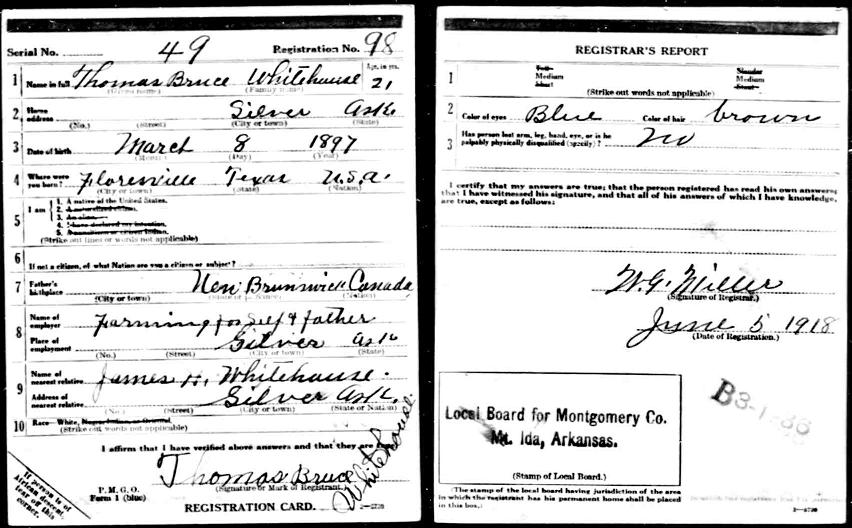 Serial No. 49 Registration No. 98
1 Name in full Thomas Bruce Whitehouse Age, in yrs. 21
(Given name) (Family name)
2 Home address Silver Ark
(No.) (Street) (City or town) (State)
3 Date of birth March 8 1897
(Month) (Day) (Year)
4 Where were you born? Floresville Texas U.S.A.
(City or town) (State) (Nation)
5 I am
1. A native of the United States.
2. A naturalized citizen.
3. An alien.
4. I have declared my intention.
5. A noncitizen or citizen Indian.
(Strike out lines or words not applicable)
6 If not a citizen, of what Nation are you a citizen or subject?
7 Father's birthplace New Brunswick Canada
(City or town) (State or province) (Nation)
8 Name of employer Farming for Self & father
Place of employment Silver Ark
(No.) (Street) (City or town) (State)
9 Name of nearest relative James H. Whitehouse.
Address of nearest relative Silver Ark.
(No.) (Street) (City or town) (State or Nation)
10 Race—White, Negro, Indian, or Oriental
(Strike out words not applicable)
I affirm that I have verified above answers and that they are true.
Thomas Bruce Whitehouse
P. M. G. O.
Form 1 (blue)
(Signature or Mark of Registrant.)
REGISTRATION CARD. 2—2739
If person is of African descent, tear off this corner.
REGISTRAR'S REPORT
1 Tall Medium Short Slender Medium Stout
(Strike out words not applicable)
2 Color of eyes Blue Color of hair brown
3 Has person lost arm, leg, hand, eye, or is he palpably physically disqualified (specify)? No
I certify that my answers are true; that the person registered has read his own answers;
that I have witnessed his signature, and that all of his answers of which I have knowledge,
are true, except as follows:
W.G. Miller
(Signature of Registrar.)
June 5 1918
(Date of Registration.)
Local Board for Montgomery Co.
Mt. Ida, Arkansas.
(Stamp of Local Board.)
(The stamp of the local board having jurisdiction of the area
in which the registrant has his permanent home shall be placed
in this box.)